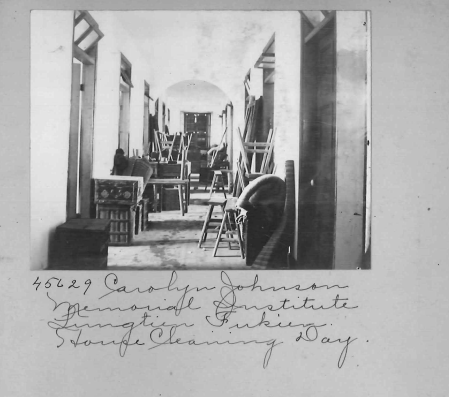 45629 Carolyn Johnson
Memorial Institute
Lungtien Fukien.
House Cleaning Day.